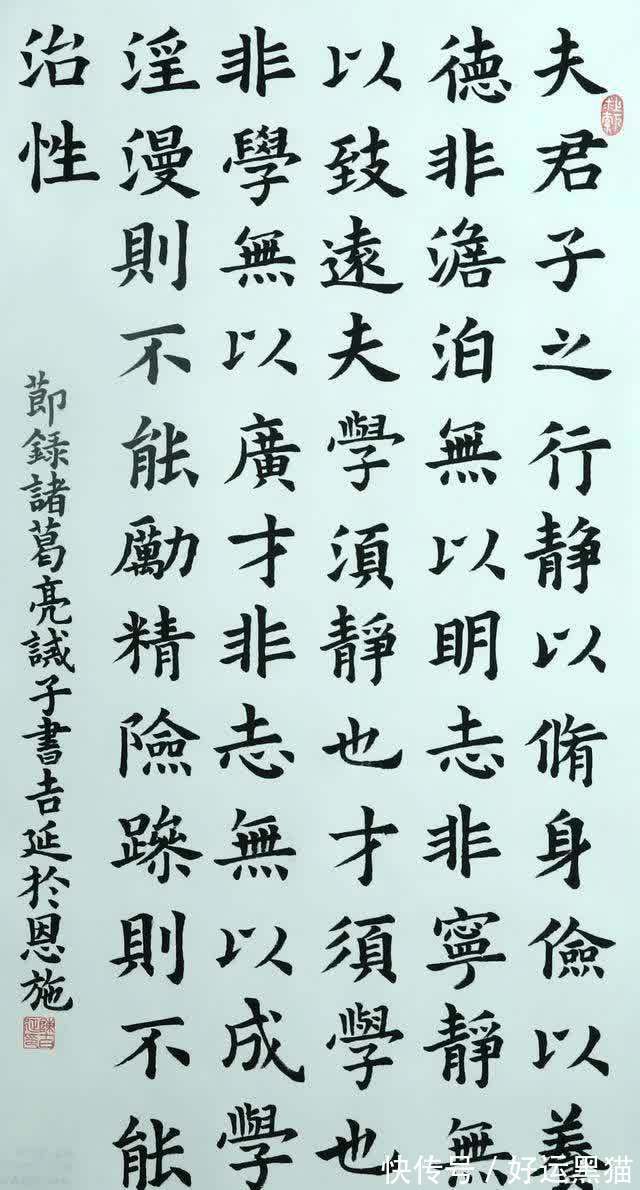 夫君子之行静以脩身儉以養
德非澹泊無以明志非寧靜無
以致遠夫學須靜也才須學也
非學無以廣才非志無以成學
淫漫則不能勵精險躁則不能
治性
節錄諸葛亮誡子書吉延於恩施
快传号/好运黑猫